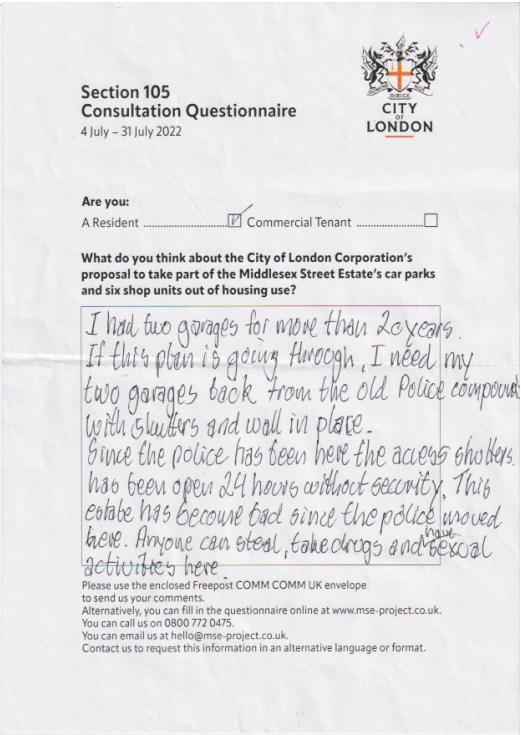 Section 105
Consultation Questionnaire
4 July – 31 July 2022
DIRIGE
CITY
OF
LONDON
Are you:
A Resident ........................... Commercial Tenant .....................
What do you think about the City of London Corporation's
proposal to take part of the Middlesex Street Estate's car parks
and six shop units out of housing use?
I had two garages for more than 20 years.
If this plan is going through, I need my
two garages back from the old Police compound
with shutters and wall in place.
Since the police has been here the access shutters.
has been open 24 hours without security. This
estate has become bad since the police moved
here. Anyone can steal, take drugs and have sexual
activities here.
Please use the enclosed Freepost COMM COMM UK envelope
to send us your comments.
Alternatively, you can fill in the questionnaire online at www.mse-project.co.uk.
You can call us on 0800 772 0475.
You can email us at hello@mse-project.co.uk.
Contact us to request this information in an alternative language or format.